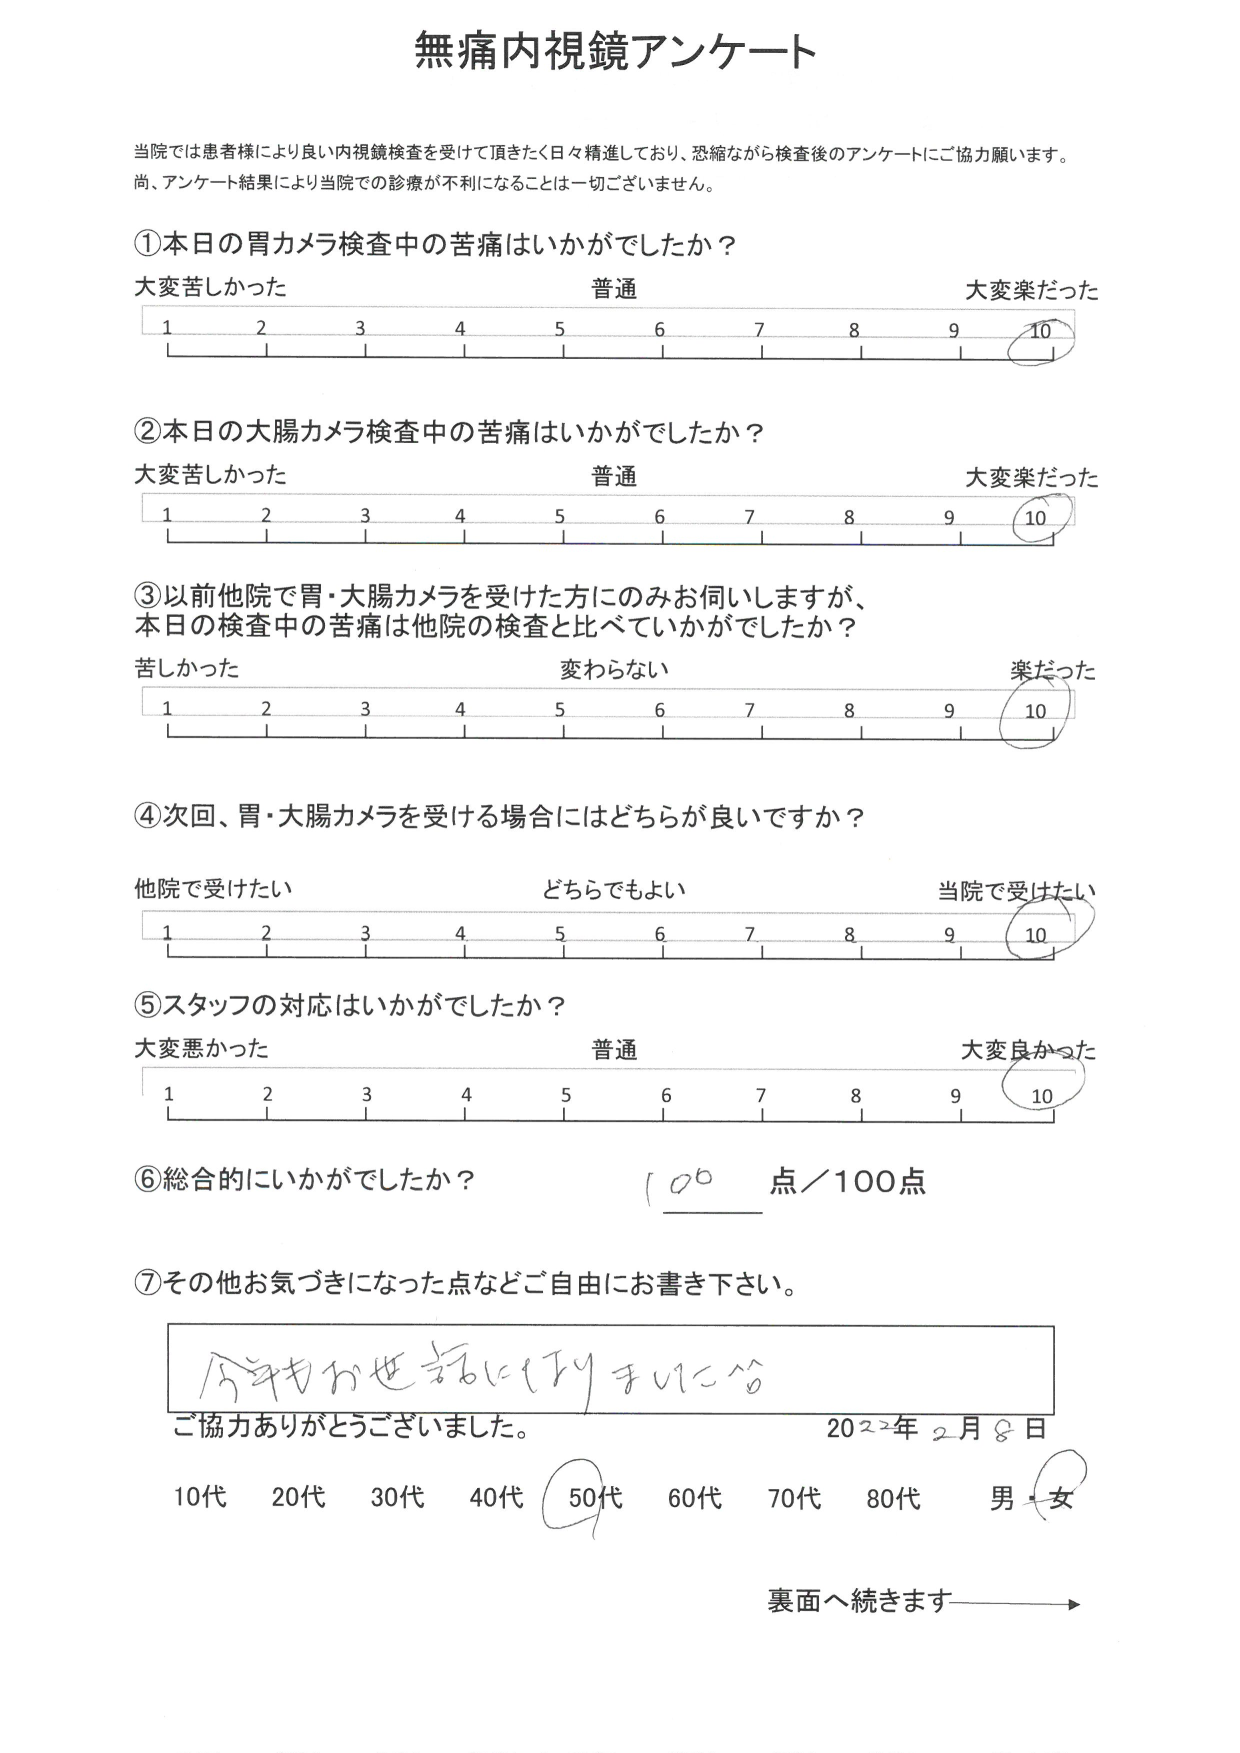 無痛内視鏡アンケート
当院では患者様により良い内視鏡検査を受けて頂きたく日々精進しており、恐縮ながら検査後のアンケートにご協力願います。
尚、アンケート結果により当院での診療が不利になることは一切ございません。
①本日の胃カメラ検査中の苦痛はいかがでしたか？
大変苦しかった 普通 大変楽だった
1 2 3 4 5 6 7 8 9 10
②本日の大腸カメラ検査中の苦痛はいかがでしたか？
大変苦しかった 普通 大変楽だった
1 2 3 4 5 6 7 8 9 10
③以前他院で胃・大腸カメラを受けた方にのみお伺いしますが、
本日の検査中の苦痛は他院の検査と比べていかがでしたか？
苦しかった 変わらない 楽だった
1 2 3 4 5 6 7 8 9 10
④次回、胃・大腸カメラを受ける場合にはどちらが良いですか？
他院で受けたい どちらでもよい 当院で受けたい
1 2 3 4 5 6 7 8 9 10
⑤スタッフの対応はいかがでしたか？
大変悪かった 普通 大変良かった
1 2 3 4 5 6 7 8 9 10
⑥総合的にいかがでしたか？ 100 点／100点
⑦その他お気づきになった点などご自由にお書き下さい。
今年もお世話になりました^^
ご協力ありがとうございました。 2022年 2月 8日
10代 20代 30代 40代 50代 60代 70代 80代 男・女
裏面へ続きます